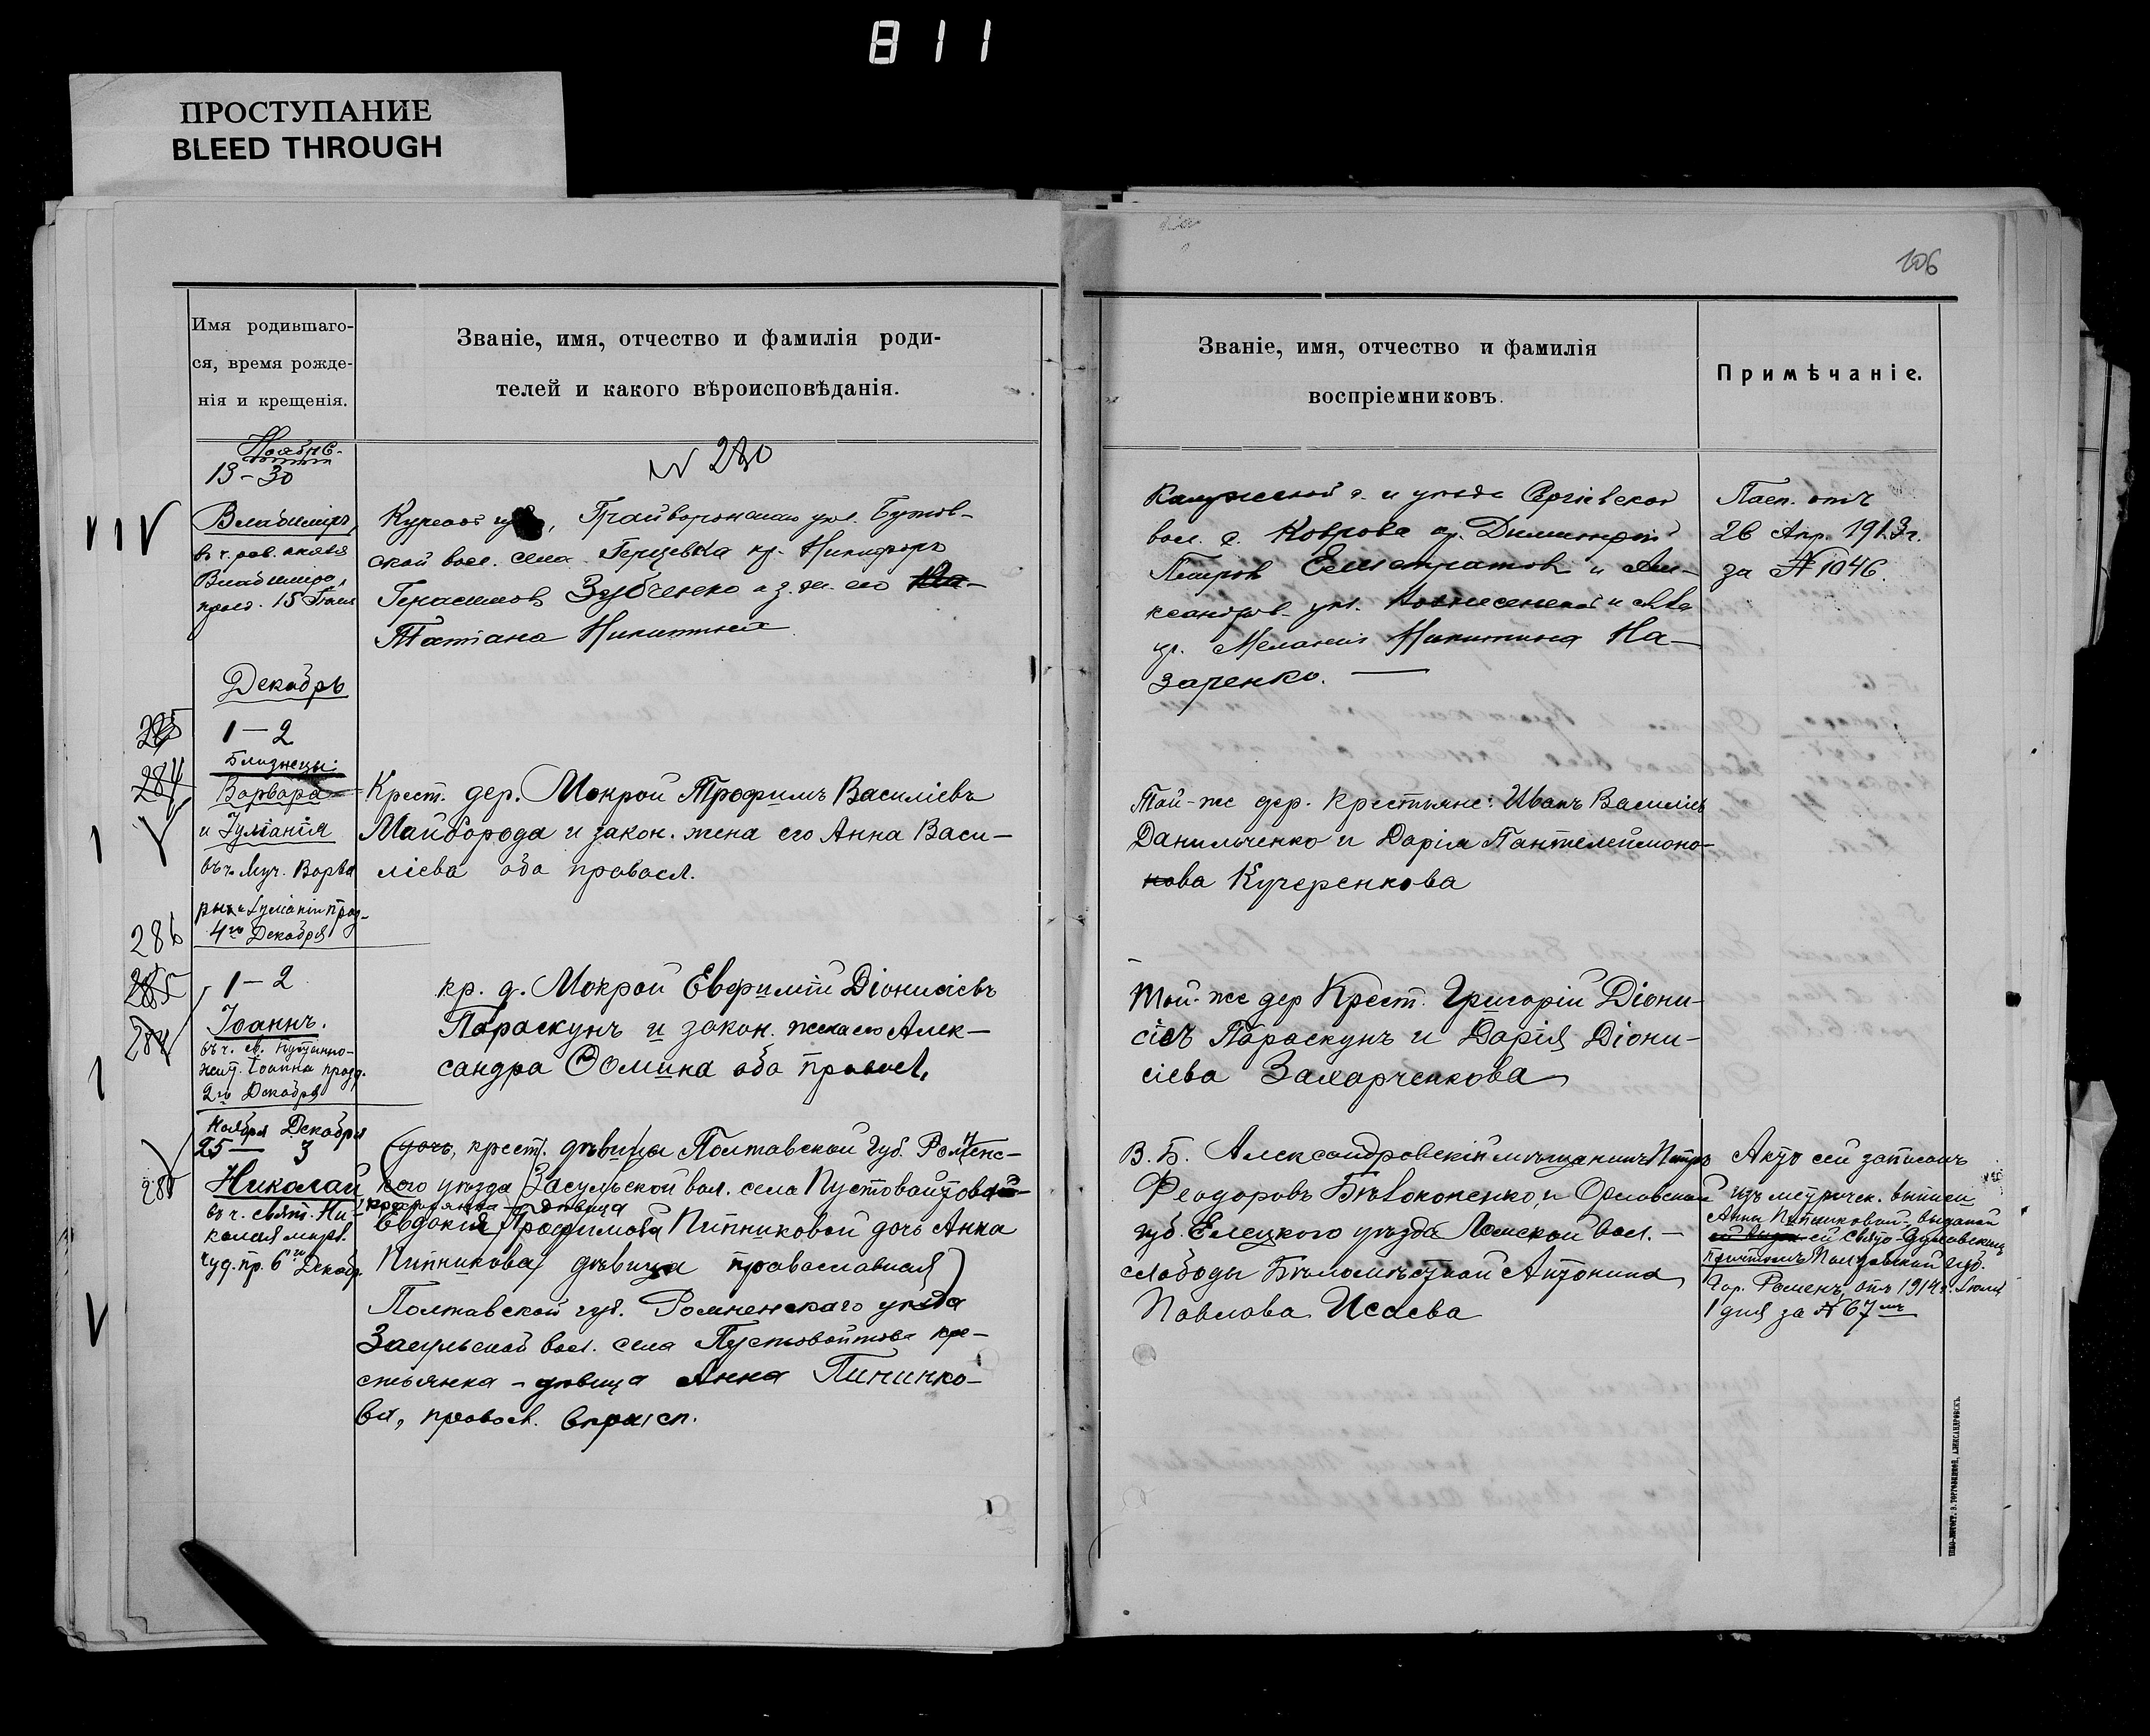 811
ПРОСТУПАНИЕ
BLEED THROUGH
106
Имя родившаго-
ся, время рожде-
нія и крещенія.
Званіе, имя, отчество и фамилія роди-
телей и какого вѣроисповѣданія.
Званіе, имя, отчество и фамилія
воспріемниковъ.
Примѣчаніе.
Ноябрь
13-30
№ 280
Владиміръ,
въ ч. рав.
Владиміра,
празд. 15 Іюля
Курской, Грайворонскаго уѣз.
ской вол. села кр. Никифоръ
Герасимовъ Зубченко и з. ж. его
Татіана Никитина
Калужской г. и уѣзда Сергіевской
вол. с. Коврова кр. Димитрій
Петровъ Елистратовъ и Але-
ксандров. уѣз. Вознесенской
кр. Меланія Никитина На-
заренко.
Пасп. отъ
26 Апр. 1913 г.
за № 1046.
Декабрь
1-2
284
Близнецы:
Варвара
и Іуліанія
въ ч. Муч. Варва
ры и Іуліаніи праз-
4го Декабря
Крест. дер. Мокрой Трофимъ Василіевъ
Майборода и закон. жена его Анна Васи-
ліева оба правосл.
Той-же дер. крестьяне: Иванъ Василіев
Данильченко и Дарія Пантелеимоно-
нова Кучеренкова
286
285
284
1-2
Іоаннъ.
въ ч. св.
Іоанна празд.
2го Декабря
кр. д. Мокрой Евфимій Діонисіевъ
Параскунъ и закон. жена его Алек-
сандра Ѳомина оба правосл.
Той-же дер Крест. Григорій Діони-
сіев Параскунъ и Дарія Діони-
сіева Захарченкова
Ноября Декабря
25 — 3
Николай
въ ч. свят. Ни-
колая мирл.
чуд. пр. 6го Декабр.
(дочь, крест. дѣвицы Полтавской губ. Роменс-
кого уѣзда Засульской вол. села Пустовойтовой
крестьянка - дѣвица
Евдокія Трофимова Пипниковой дочь Анна
Пипникова дѣвица православная)
Полтавской губ. Роменскаго уѣзда
Засульской вол. села Пустовойтова кре-
стьянка - дѣвица Анна Пипнико-
ва, правосл.
В. Б. Александровскій мѣщанинъ Петръ
Феодоровъ Бѣлоконенко, и Орловской
губ. Елецкого уѣзда Ламской вол. -
слободы Бѣломѣстной Антонина
Павлова Исаева
Актъ сей записанъ
изъ метричек. выписи
Анны Пипниковой, выданой
ей Свято-Духовским
причтомъ Полтавской губ.
гор. Роменъ, отъ 1914 г. Іюля
1 дня за № 67